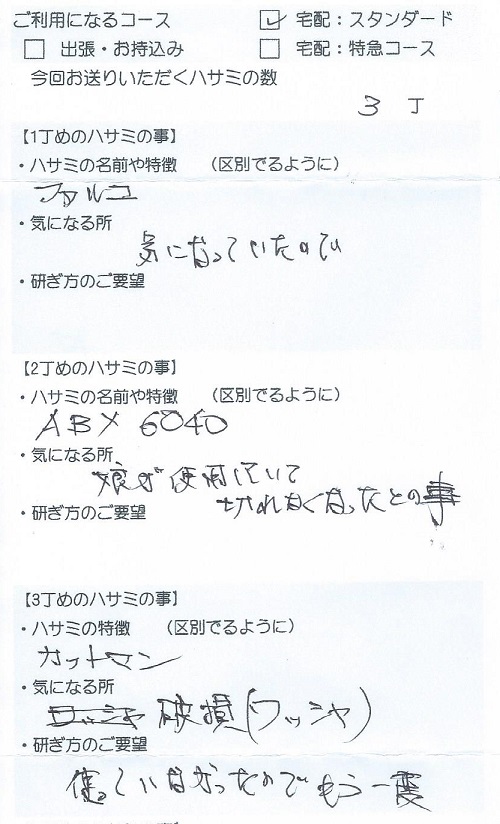 ご利用になるコース ☑ 宅配：スタンダード
□ 出張・お持込み □ 宅配：特急コース
今回お送りいただくハサミの数
3 丁
【1丁めのハサミの事】
・ハサミの名前や特徴 （区別でるように）
ファルコ
・気になる所
気になっていたので
・研ぎ方のご要望
【2丁めのハサミの事】
・ハサミの名前や特徴 （区別でるように）
ABX 6040
・気になる所
娘が使用していて
切れなくなったとの事
・研ぎ方のご要望
【3丁めのハサミの事】
・ハサミの特徴 （区別でるように）
カットマン
・気になる所
ワッシャ 破損(ワッシャ)
・研ぎ方のご要望
使っていなかったのでもう一度